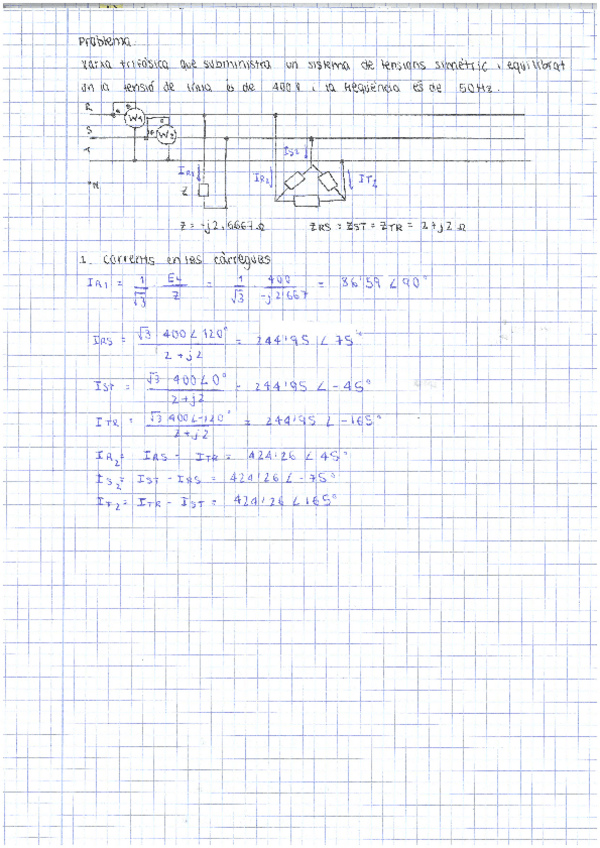 Problema
Xarxa trifàsica que subministra un sistema de tensions simètric i equilibrat
on la tensió de línia és de 400 V i la freqüència és de 50 Hz.
R
W1
S
W2
T
N
IR1
Z
IS2
IR2
IT2
Z = -j2,6667 Ω ZRS = ZST = ZTR = 2+j2 Ω
1. Corrents en les càrregues
IR1 = 1/√3 EL/Z = 1/√3 400/-j2'667 = 86'59 ∠90°
IRS = √3 400∠120°/2+j2 = 244'95 ∠75°
IST = √3 400∠0°/2+j2 = 244'95 ∠-45°
ITR = √3 400∠-120°/2+j2 = 244'95 ∠-165°
IR2 = IRS - ITR = 424'26 ∠45°
IS2 = IST - IRS = 424'26 ∠-75°
IT2 = ITR - IST = 424'26 ∠165°